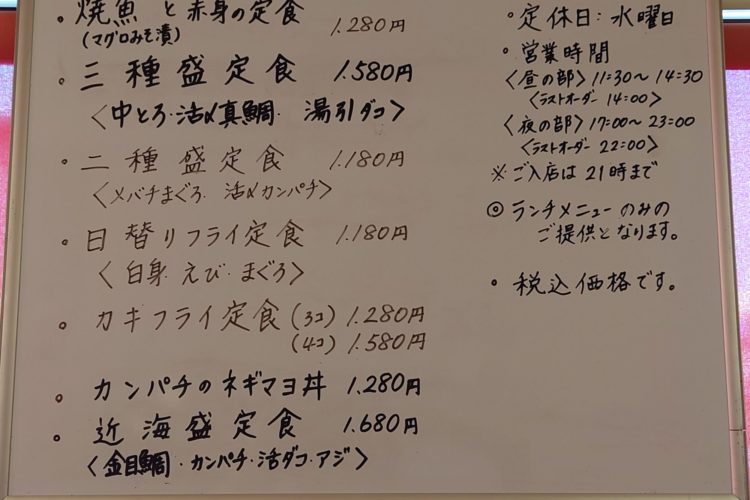 ・焼魚と赤身の定食 1.280円
(マグロみそ漬)
・三種盛定食 1.580円
〈中とろ・活〆真鯛 湯引ダコ〉
・二種盛定食 1.180円
〈メバチまぐろ. 活〆カンパチ〉
・日替りフライ定食 1.180円
〈白身・えび・まぐろ〉
・カキフライ定食 (3コ) 1.280円
(4コ) 1.580円
・カンパチのネギマヨ丼 1.280円
・近海盛定食 1.680円
〈金目鯛・カンパチ・活ダコ・アジ〉
・定休日:水曜日
・営業時間
〈昼の部〉11:30〜14:30
〈ラストオーダー 14:00〉
〈夜の部〉17:00〜23:00
〈ラストオーダー 22:00〉
※ご入店は21時まで
◎ランチメニューのみの
ご提供となります。
・税込価格です。